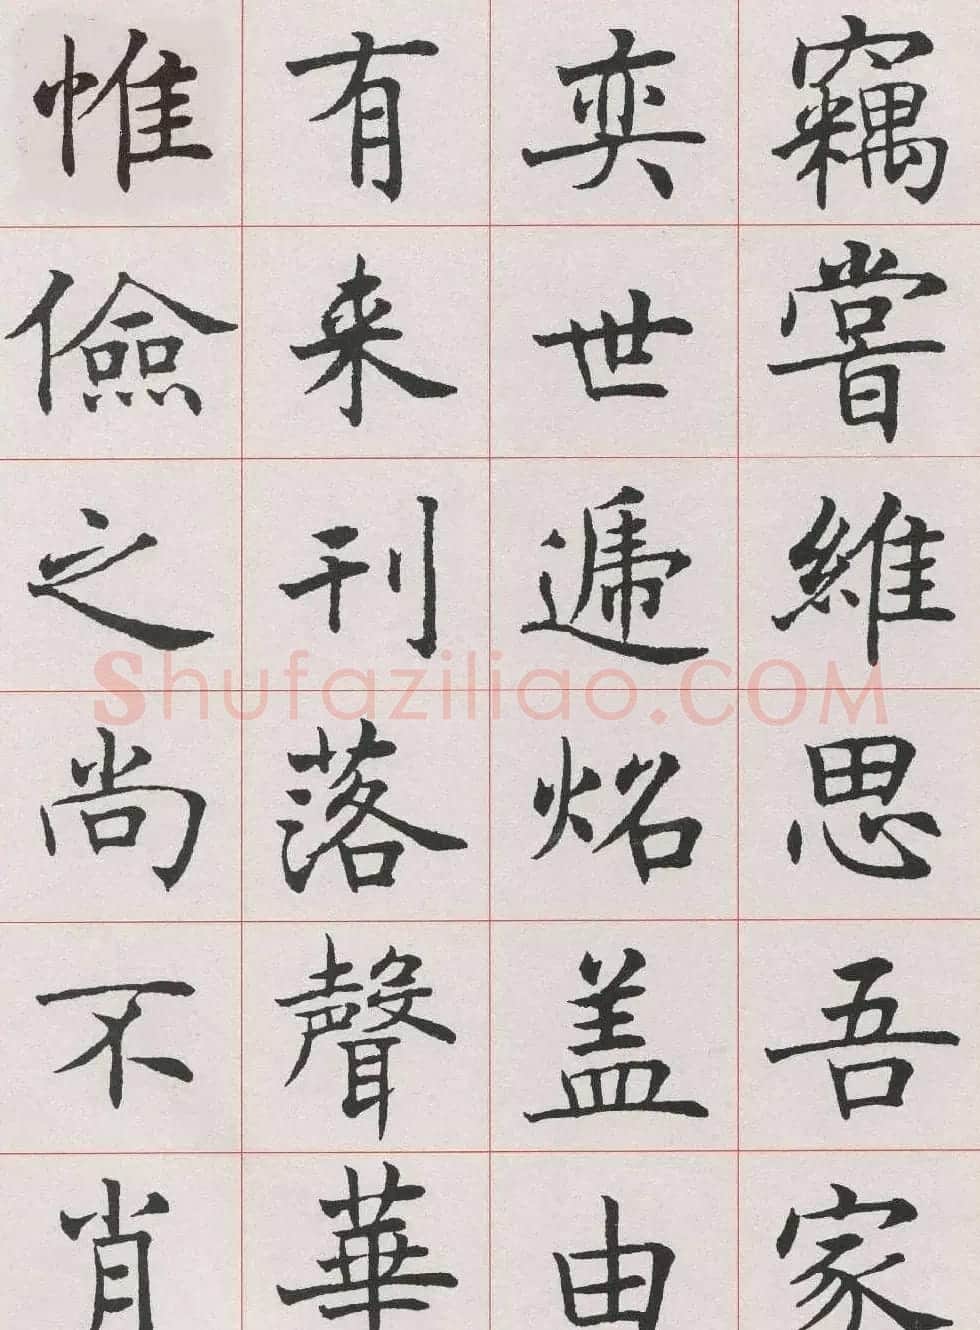 竊嘗維思吾家
奕世遞炤盖由
有来刊落聲華
惟儉之尚不肖
Shufaziliao.COM